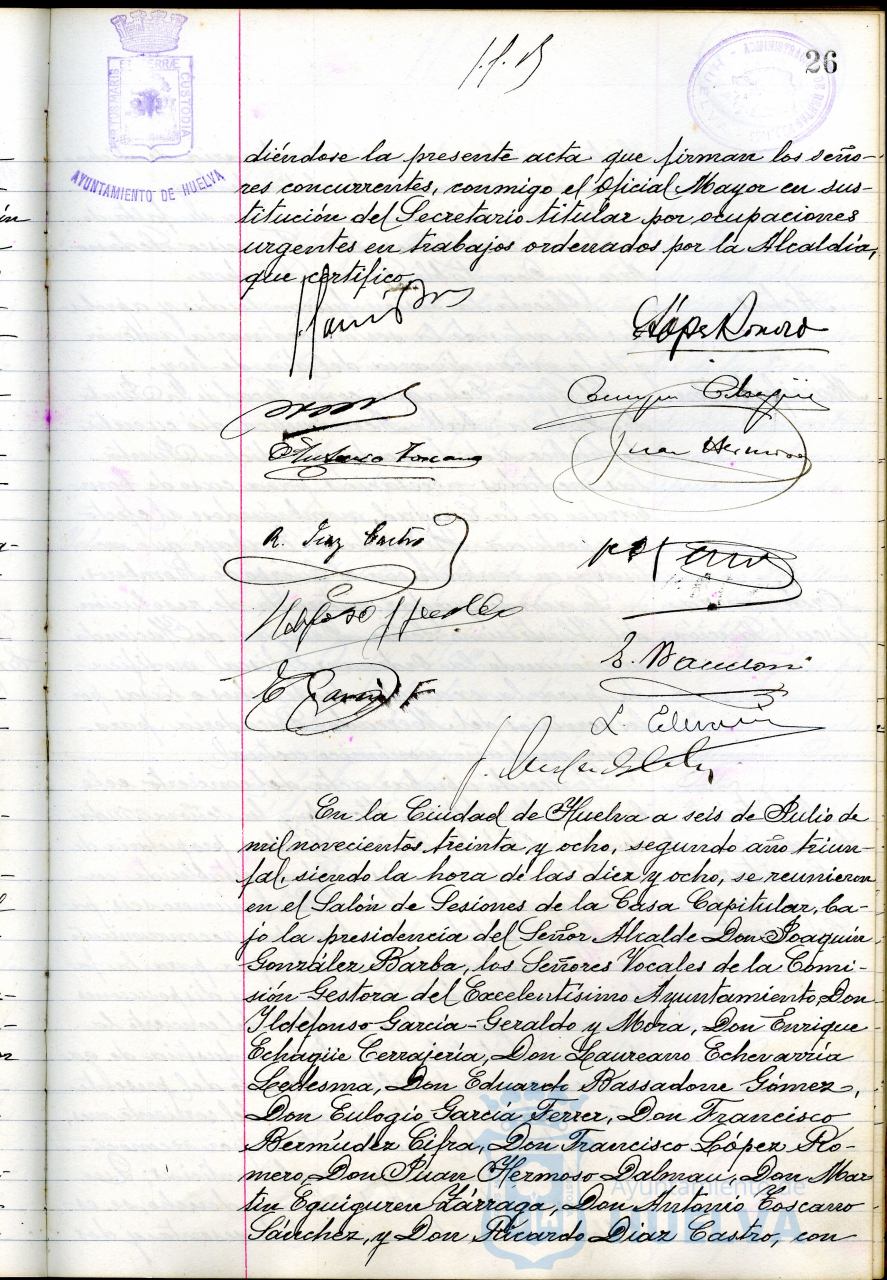 26
PORTUS MARIS ET TERRÆ CUSTODIA
AYUNTAMIENTO DE HUELVA
diéndose la presente acta que firman los seño-
res concurrentes, conmigo el Oficial Mayor en sus-
titución del Secretario titular por ocupaciones
urgentes en trabajos ordenados por la Alcaldía,
que certifico.
López Romero
Enrique Echagüe
Juan Hermoso
R. Diaz Castro
E. García F.
En la Ciudad de Huelva a seis de Julio de
mil novecientos treinta y ocho, segundo año triun-
fal, siendo la hora de las diez y ocho, se reunieron
en el Salón de Sesiones de la Casa Capitular, ba-
jo la presidencia del Señor Alcalde Don Joaquín
González Barba, los Señores Vocales de la Comi-
sión Gestora del Excelentísimo Ayuntamiento, Don
Ildefonso García-Geraldo y Mora, Don Enrique
Echagüe Cerrajería, Don Laureano Echevarría
Ledesma, Don Eduardo Bassadone Gómez,
Don Eulogio García Ferrer, Don Francisco
Bermudez Cifra, Don Francisco López Ro-
mero, Don Juan Hermoso Dalmau, Don Mar-
tin Eguiguren Zárraga, Don Antonio Toscano
Sánchez, y Don Ricardo Diaz Castro, con
Ayuntamiento de
HUELVA